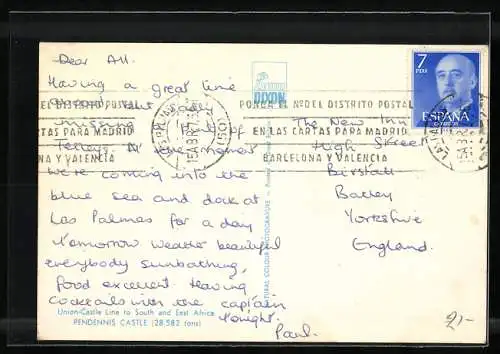 Dear All.
Having a great time
aboard, but sadly
missing a pint of
Tetleys. At the moment
we're coming into the
blue sea and dock at
Las Palmas for a day
tomorrow weather beautiful
everybody sunbathing,
food excellent. Having
cocktails with the captain
tonight.
Paul.
Union-Castle Line to South and East Africa
PENDENNIS CASTLE (28,582 tons)
DIXON
NATURAL COLOUR PHOTOGRAVURE
PONGA EL Nº DEL DISTRITO POSTAL
EN LAS CARTAS PARA MADRID
BARCELONA Y VALENCIA
EL DISTRITO POSTAL
CARTAS PARA MADRID
NA Y VALENCIA
7
PTAS
ESPAÑA
CORREOS
The New Inn
High Street
Birstall
Batley
Yorkshire
England.
2,-